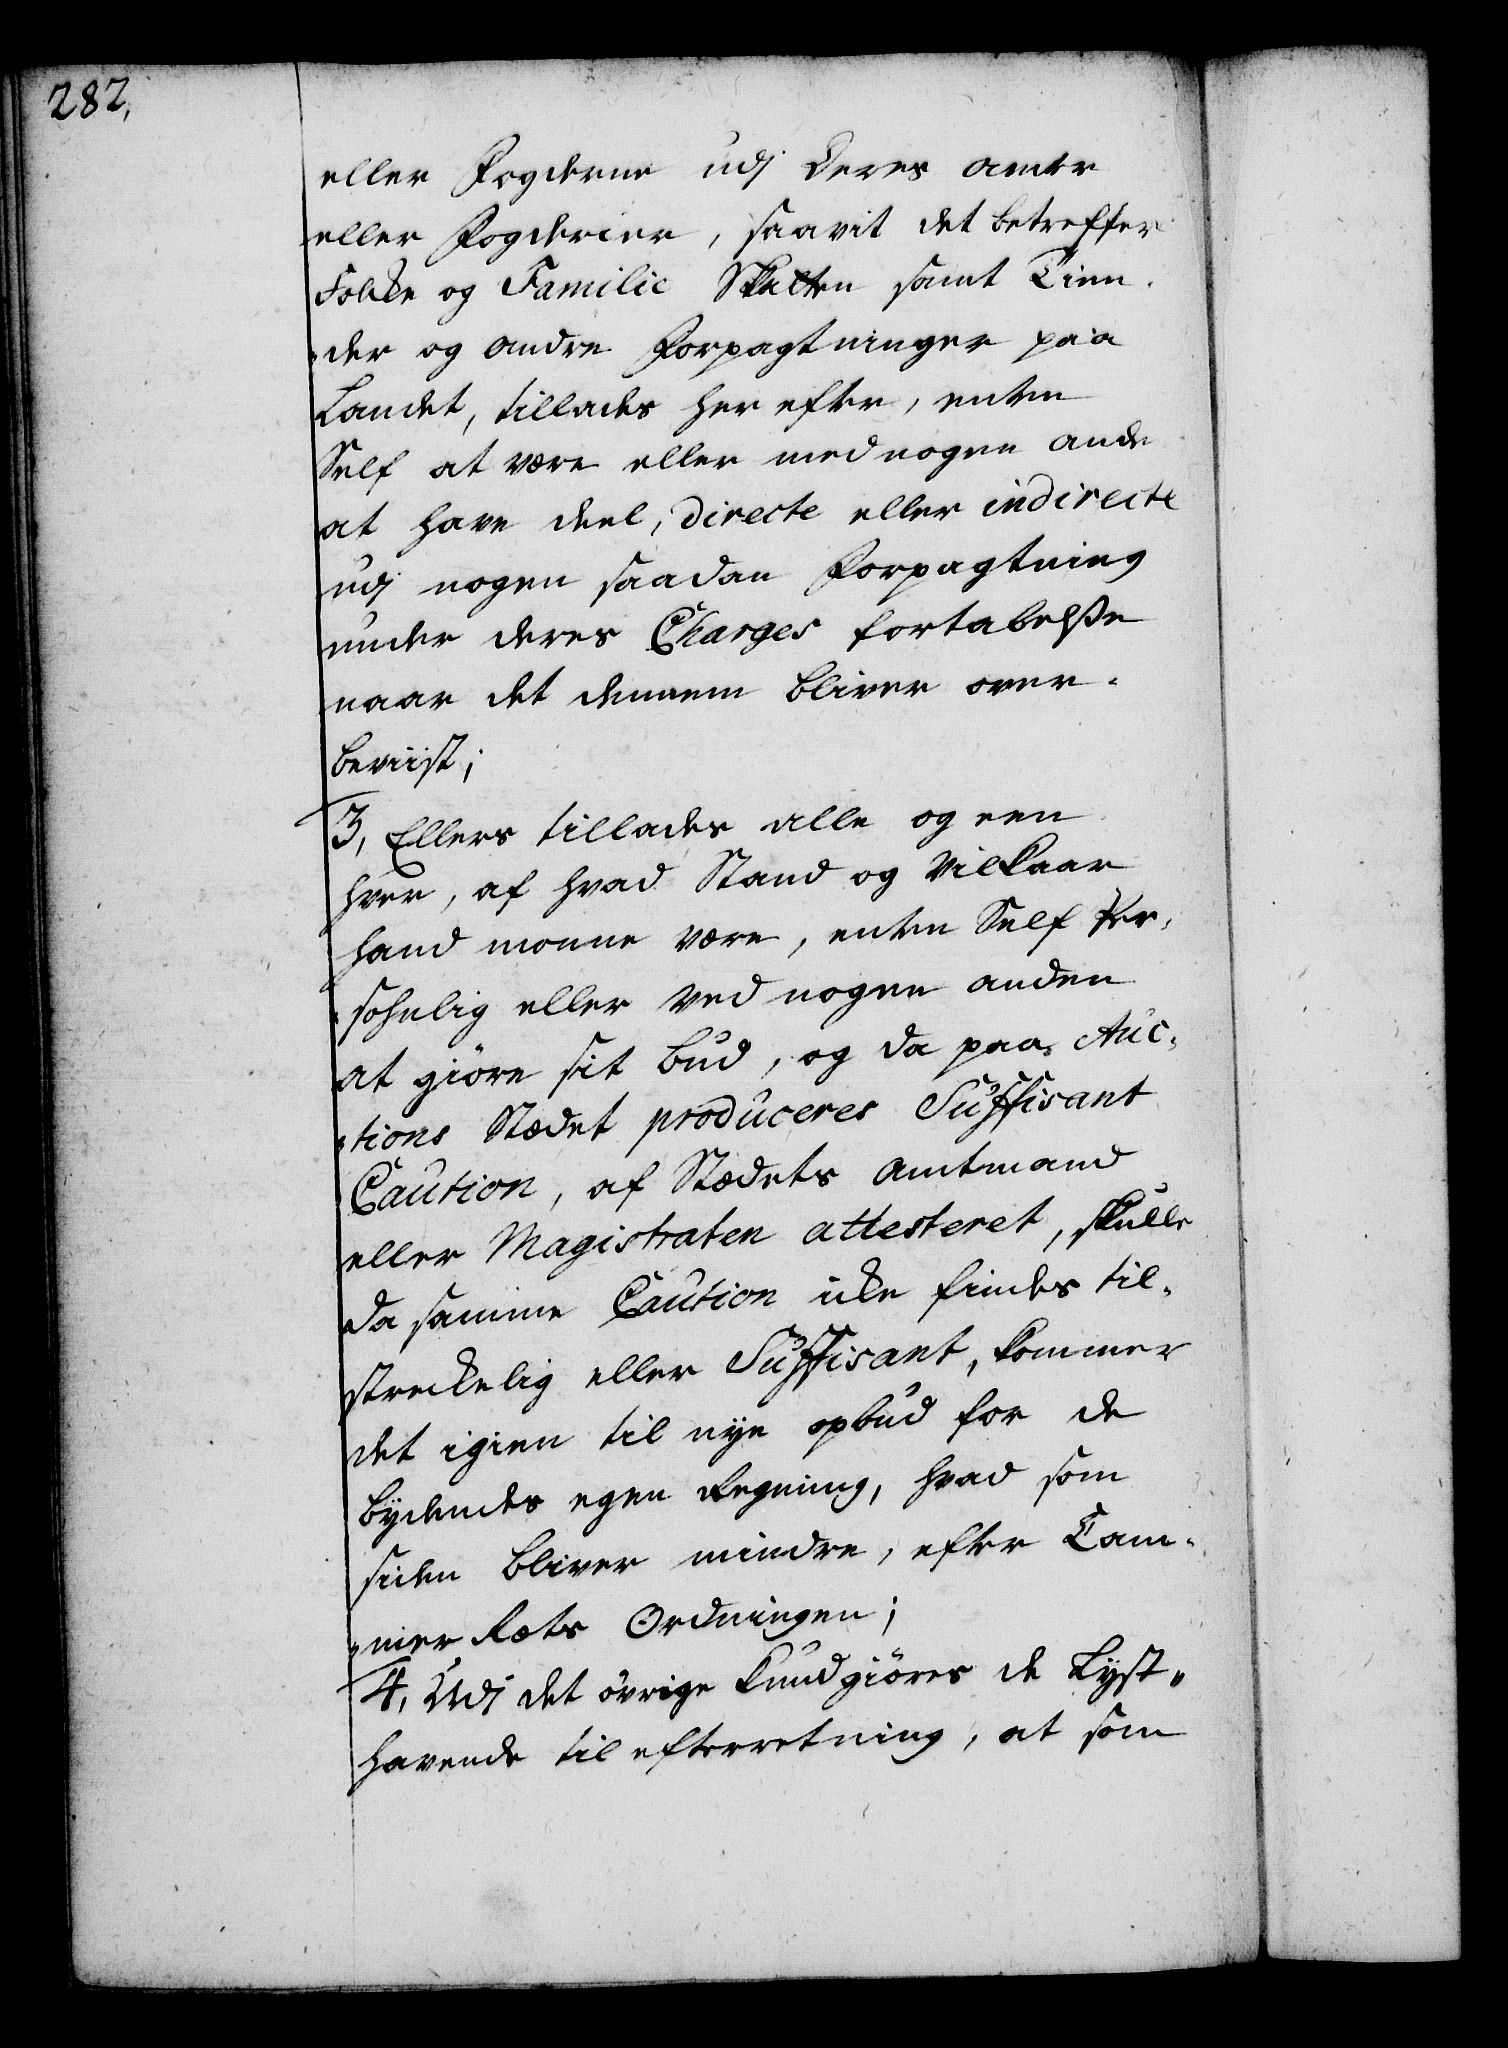 282.
eller Fogderne udj Deres amter
eller Fogderier, saavit det betreffer
Folke og Familie Skatten samt Tien-
der og andre Forpagtninger paa
Landet, tillades her efter, enten
Self at være eller med nogen ande
at have deel, directe eller indirecte
udj nogen saadan Forpagtning
under deres Charges fortabelsse
naar det dennem bliver over-
beviist;
3, Ellers tillades alle og een
hver, af hvad Stand og Vilkaar
hand monne være, enten Self Per-
sohnlig eller ved nogen anden
at giöre sit bud, og da paa Auc-
tions Stædet produceres Suffisant
Caution, af Stædets amtmand
eller Magistraten attesteret, skulle
da samme Caution icke findes til-
streckelig eller Suffisant, kommer
det igien til nye opbud for de
bydendes egen Regning, hvad som
siden bliver mindre, efter Cam-
mer Rets Ordningen;
4, Udj det övrige kundgiöres de Lyst-
havende til efterretning, at som